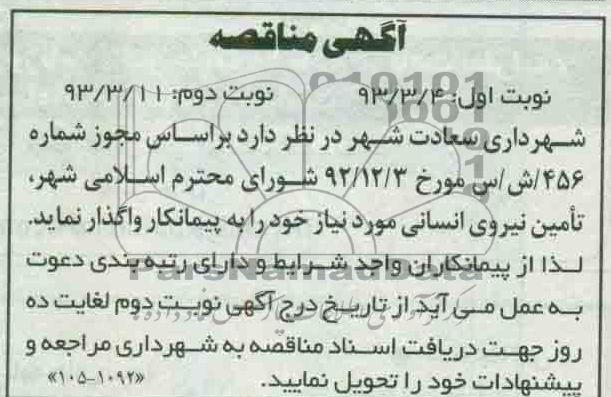 آگهی مناقصه
نوبت اول: ۹۳/۳/۴ نوبت دوم: ۹۳/۳/۱۱
شهرداری سعادت شهر در نظر دارد براساس مجوز شماره
۴۵۶/ش/س مورخ ۹۲/۱۲/۳ شورای محترم اسلامی شهر،
تأمین نیروی انسانی مورد نیاز خود را به پیمانکار واگذار نماید.
لذا از پیمانکاران واجد شرایط و دارای رتبه بندی دعوت
ParsNamadData
به عمل می آید از تاریخ درج آگهی نوبت دوم لغایت ده
روز جهت دریافت اسناد مناقصه به شهرداری مراجعه و
پیشنهادات خود را تحویل نمایید.
«۱۰۵-۱۰۹۲»